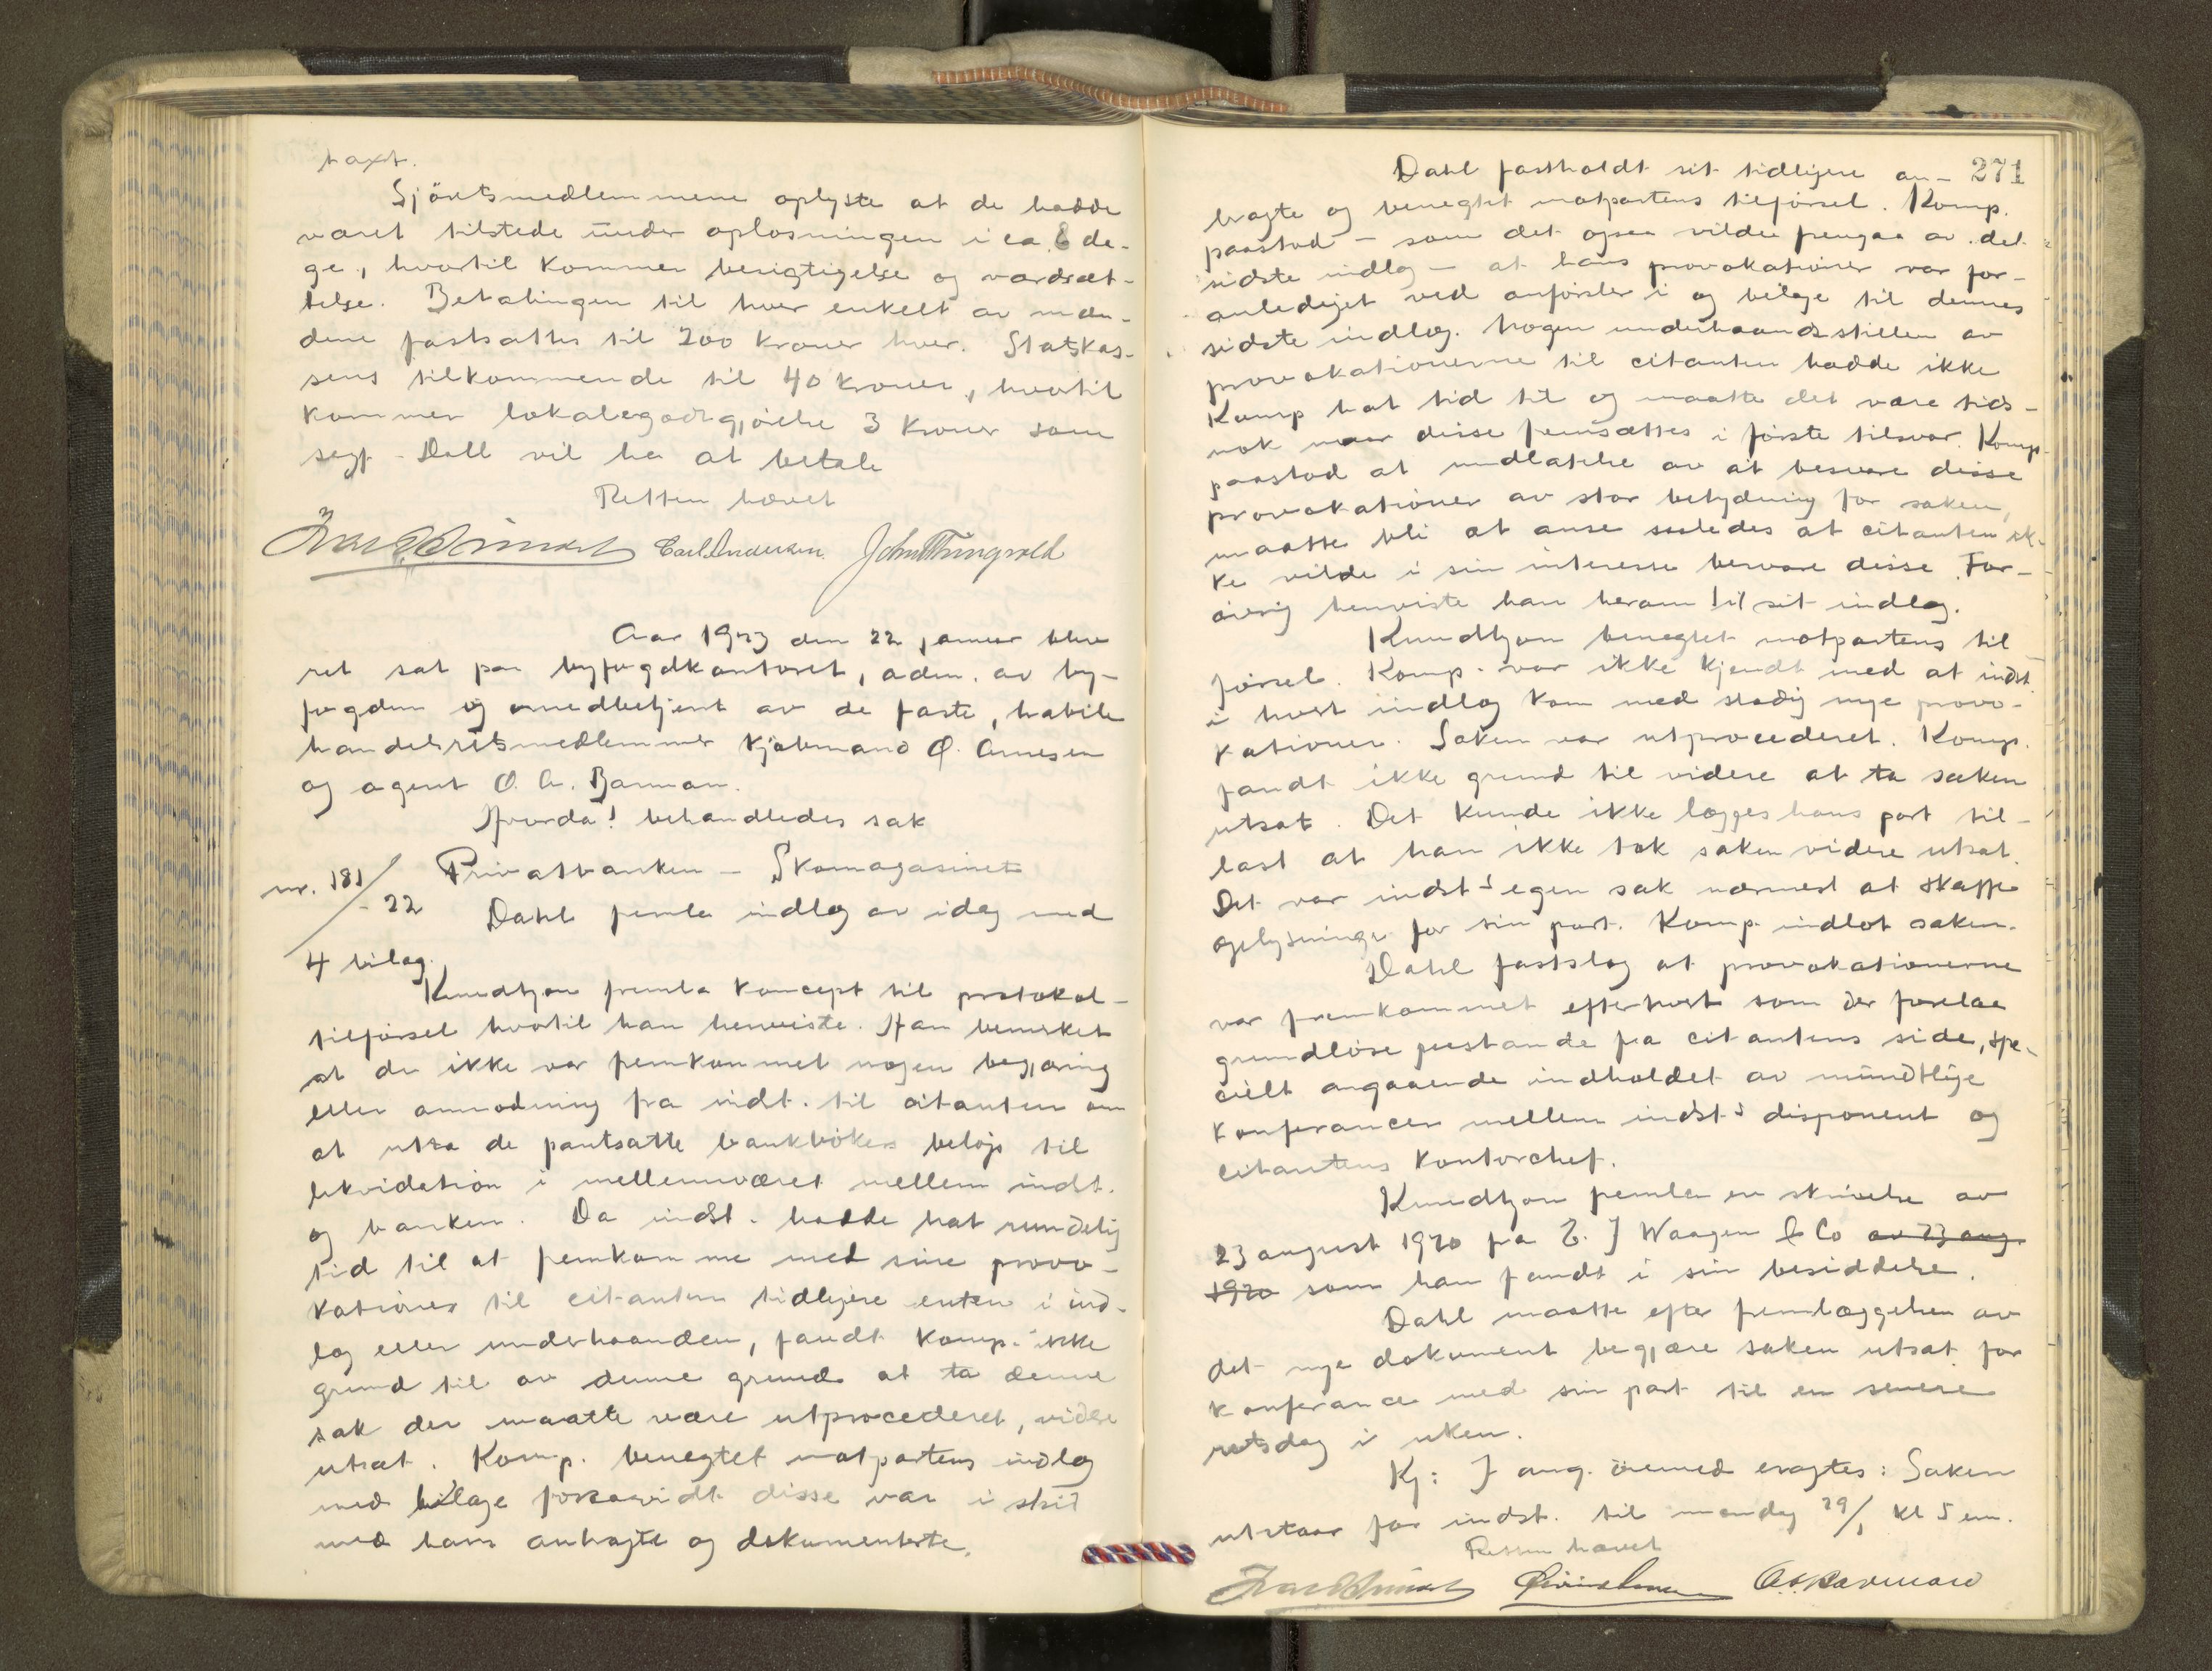 taxt.
Sjöretsmedlemmene oplyste at de hadde
været tilstede under oplosningen i ca 8 da-
ge, hvortil kommer besigtigelse og værdsæt-
telse. Betalingen til hver enkelt av mæn-
dene fastsattes til 200 kroner hver. Statskas-
sens tilkommende til 40 kroner, hvortil
kommer lokalegodtgjörelse 3 kroner som
sagf. Dall vil ha at betale
Retten hævet
Carl Andersen John Thingvold
Aar 1923 den 22 januar blev
ret sat paa byfogdkontoret, adm. av by-
fogden og medbetjent av de faste, habile
handelsretsmedlemmer kjøbmand Ø. Arnesen
og agent O. A. Barman.
Hvorda! behandledes sak
nr. 181/-22 Privatbanken - Skomagasinet
Dahl fremla indlæg av idag med
4 bilag.
Knudtzon fremla koncept til protokol-
tilførsel hvortil han henviste. Han bemerket
at der ikke var fremkommet nogen begjæring
eller anmodning fra indst. til citanten om
at utta de pantsatte bankbøkers beløp til
likvidation i mellemværet mellem indst.
og banken. Da indst. hadde hat rundelig
tid til at fremkomme med sine provo-
kationer til citanten tidligere enten i ind-
læg eller underhaanden, fandt komp. ikke
grund til av denne grund at ta denne
sak der maatte være utprocederet, videre
utsat. Komp. benegtet motpartens indlæg
med bilage forsaavidt disse var i strid
med hans anbragte og dokumenterte.
271
Dahl fastholdt sit tidligere an-
bragte og benegtet motpartens tilførsel. Komp.
paastod - som det ogsaa vilde fremgaa av det
sidste indlæg - at hans provokationer var for-
anlediget ved anførsler i og bilage til dennes
sidste indlæg. Nogen underhaandsstillen av
provokationerne til citanten hadde ikke
Komp hat tid til og maatte det være tids-
nok naar disse fremsættes i første tilsvar. Komp.
paastod at undlatelse av at besvare disse
provokationer av stor betydning for saken,
maatte bli at anse saaledes at citanten ik-
ke vilde i sin interesse besvare disse. For-
øvrig henviste han herom til sit indlæg.
Knudtzon benegtet motpartens til
førsel. Komp. var ikke kjendt med at indst.
i hvert indlæg kom med stadig nye provo-
kationer. Saken var utprocederet. Komp.
fandt ikke grund til videre at ta saken
utsat. Det kunde ikke lægges hans part til-
last at han ikke tok saken videre utsat.
Det var indst's egen sak nærmest at skaffe
oplysninger for sin part. Komp. indlot saken.
Dahl fastslog at provokationerne
var fremkommet efterhvert som der forelaa
grundløse paastande fra citantens side, spe-
cielt angaaende indholdet av mundtlige
konferancer mellem indst's disponent og
citantens kontorchef.
Knudtzon fremla en skrivelse av
23 august 1920 fra E. J Waagen & Co av 23 aug.
1920 som han fandt i sin besiddelse.
Dahl maatte efter fremlæggelsen av
det nye dokument begjære saken utsat for
konferance med sin part til en senere
retsdag i uken.
Kj: I ang. øiemed eragtes: Saken
utstaar for indst. til mandag 29/1 kl 5 em.
Retten hævet